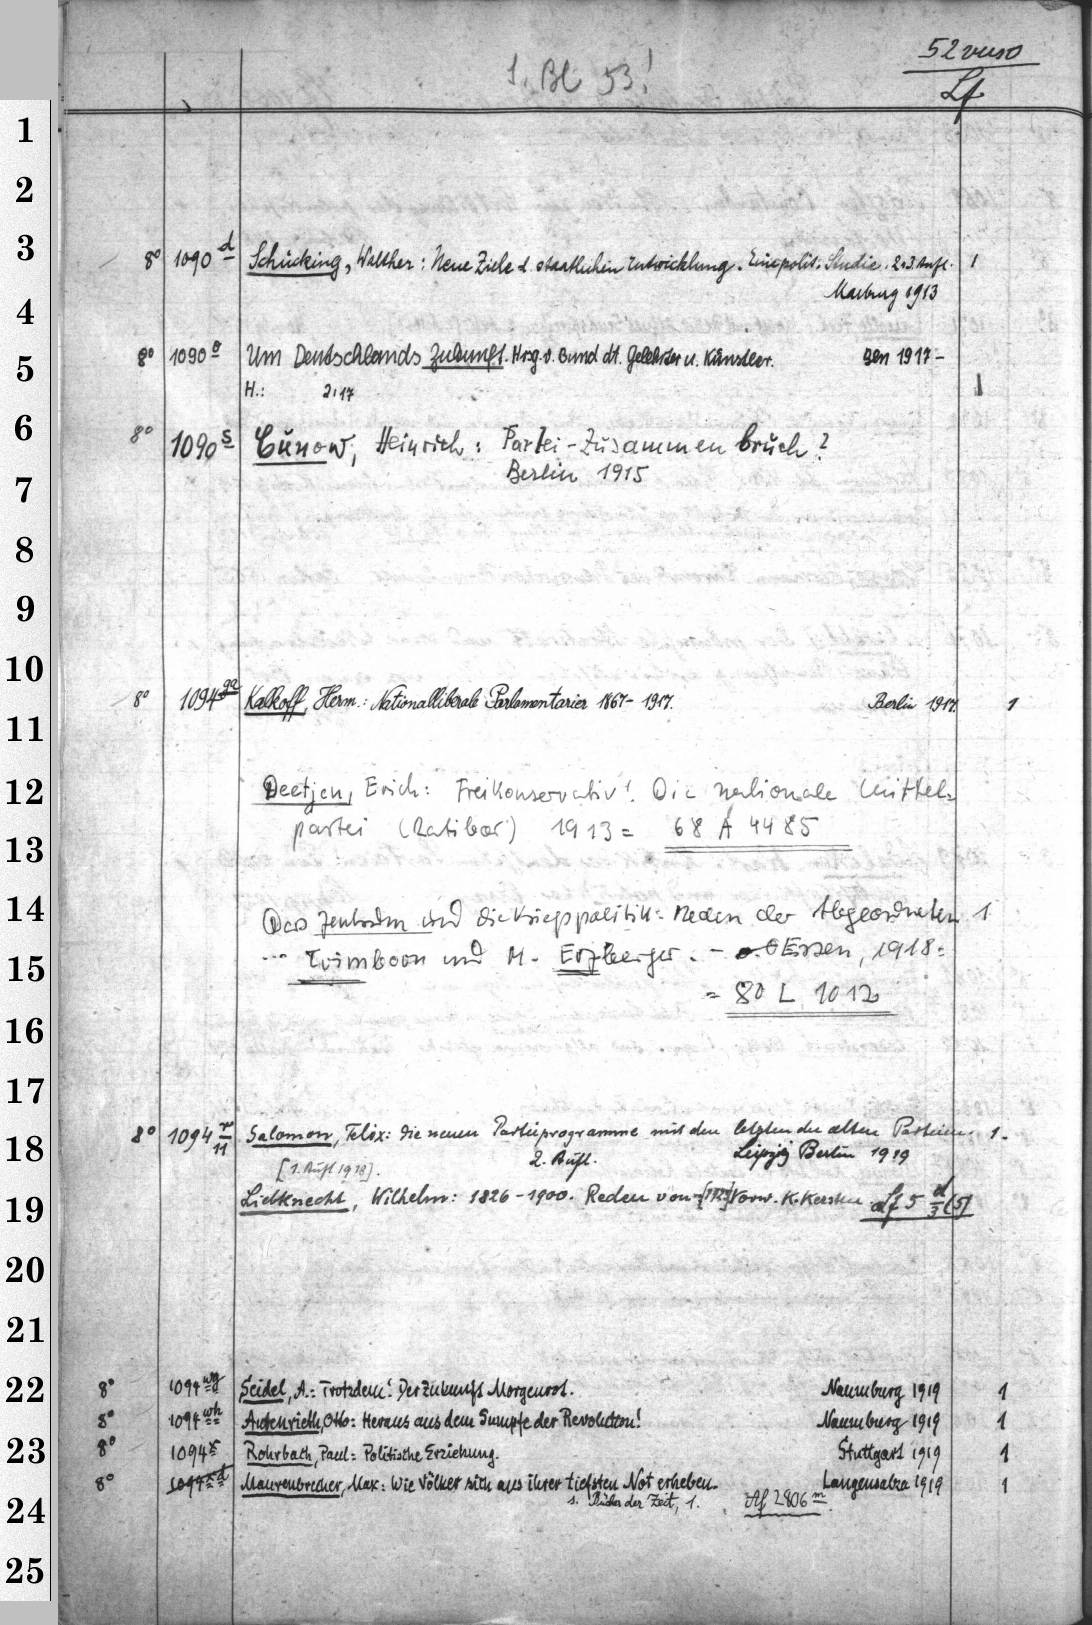 52 verso
Lf
s. Bl 53!
8° 1090 d Schücking, Walther: Neue Ziele d. staatlichen Entwicklung. Eine polit. Studie. 2.+3. Aufl. 1
Marburg 1913
8° 1090 Um Deutschlands Zukunft. Hrsg. v. Bund dt. Gelehrter u. Künstler. 1917-
H.: 2;17 1
8° 1090 s Cunow, Heinrich: Partei-Zusammenbruch?
Berlin 1915
8° 1094 ga Kalkoff, Herm.: Nationalliberale Parlamentarier 1867-1917. Berlin 1917. 1
Deetjen, Erich: Freikonservativ! Die nationale Mittel-
partei (Ratibor) 1913 = 68 A 4485
Das Zentrum und die Kriegspolitik: Reden der Abgeordneten 1
... Trimborn und M. Erzberger. - Essen, 1918 =
= 80 L 1012
8° 1094 r/11 Salomon, Felix: Die neuen Parteiprogramme mit den letzten der alten Parteien. 1.
2. Aufl. Leipzig Berlin 1919
[1. Aufl 1918].
Liebknecht, Wilhelm: 1826-1900. Reden von Vorw. K. Kersten. Lf 5 d/3 (5)
8° 1094 wg Seidel, A.: Trotzdem! Der Zukunft Morgenrot. Naumburg 1919 1
8° 1094 wh Autenrieth, Otto: Heraus aus dem Sumpfe der Revolution! Naumburg 1919 1
8° 1094 x Rohrbach, Paul: Politische Erziehung. Stuttgart 1919 1
8° 1094 xd Maurenbrecher, Max: Wie Völker sich aus ihrer tiefsten Not erheben. Langensalza 1919 1
s. Bücher der Zeit, 1. Af 2806 m
1
2
3
4
5
6
7
8
9
10
11
12
13
14
15
16
17
18
19
20
21
22
23
24
25